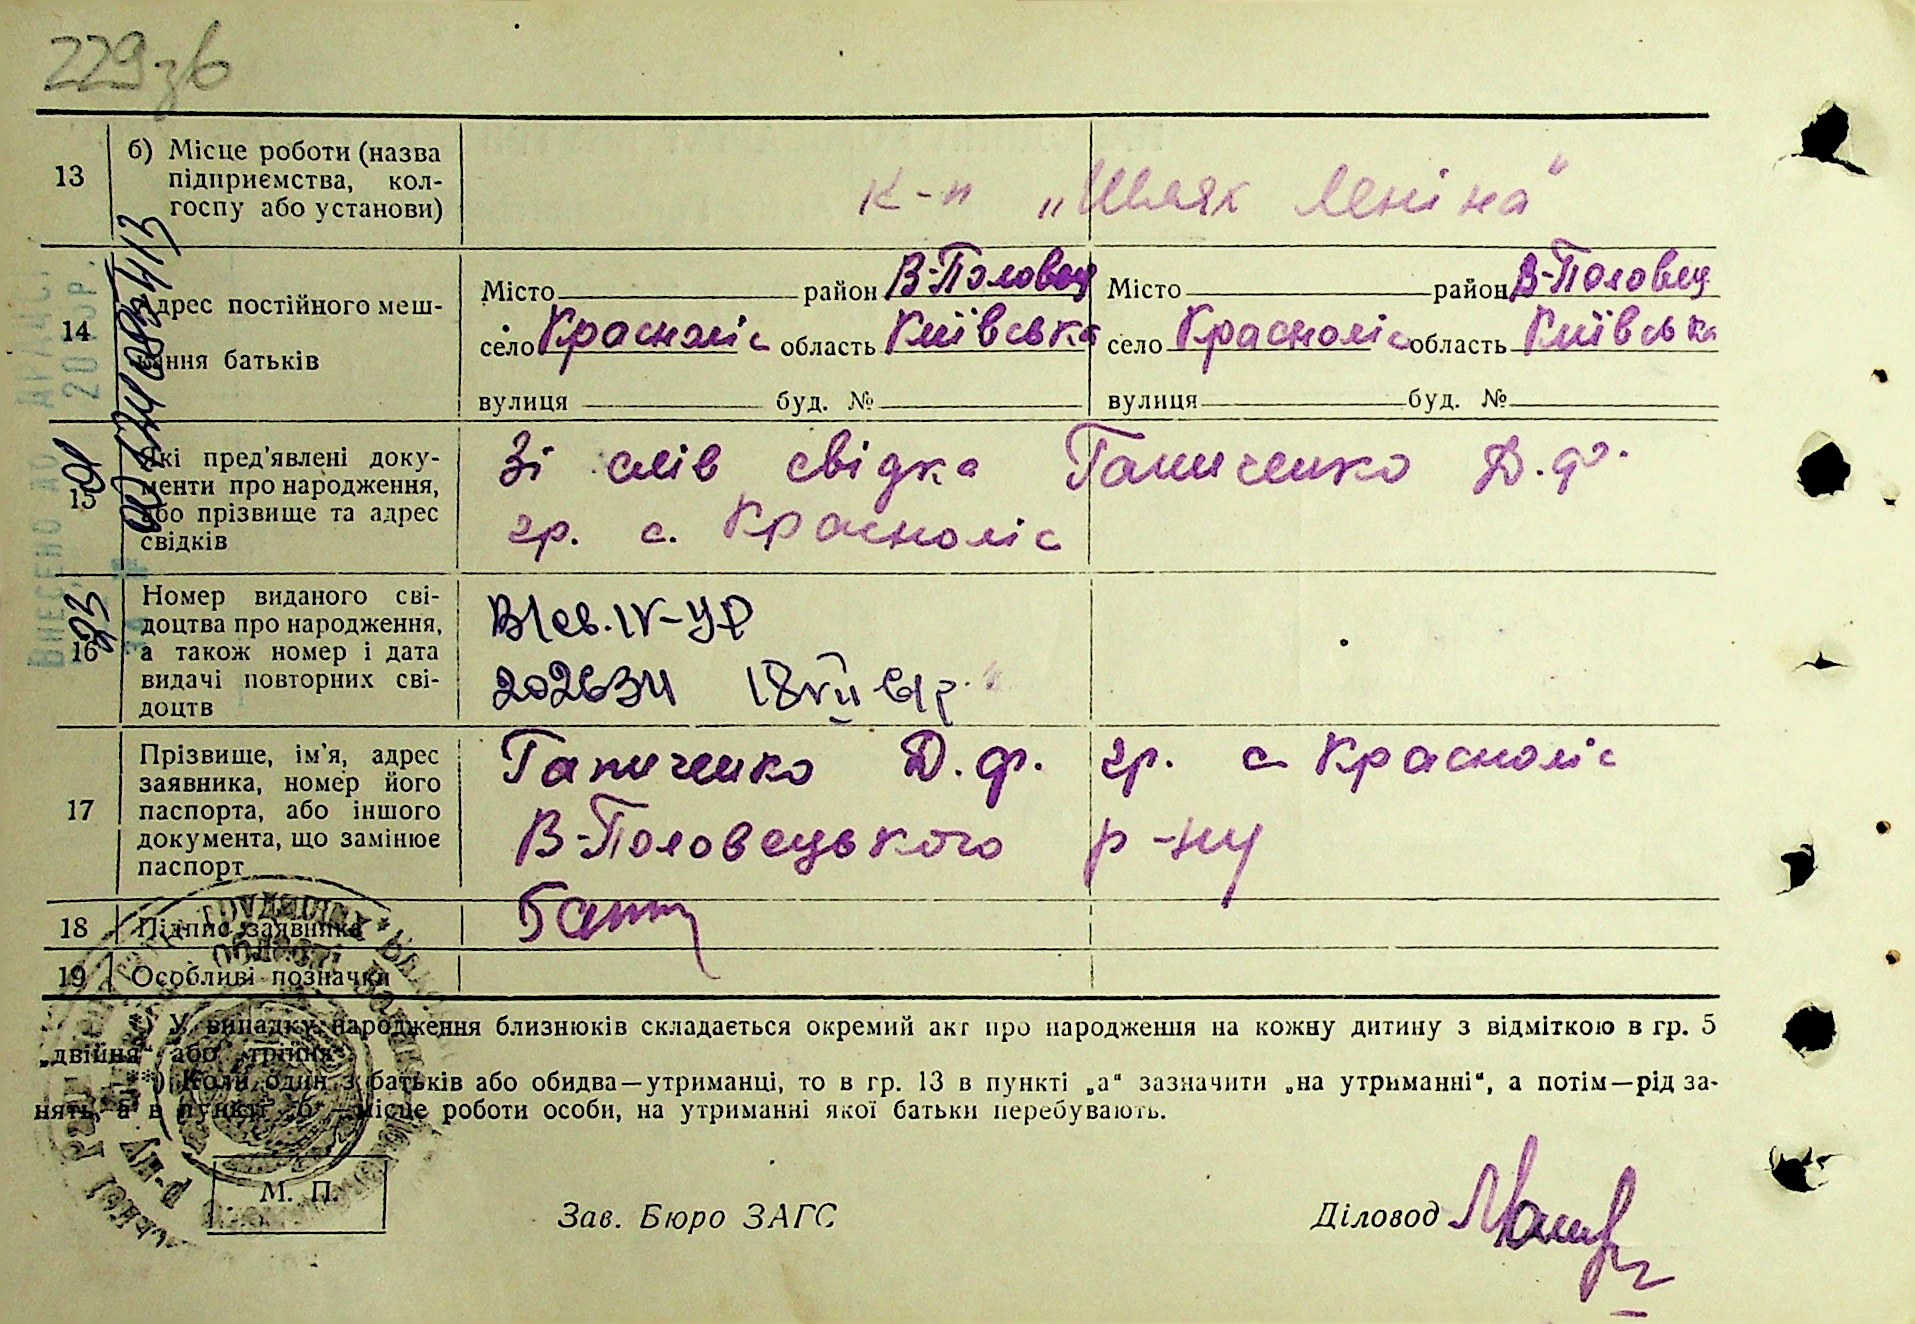 229зв
13 б) Місце роботи (назва
підприємства, кол-
госпу або установи)
к-п „Шлях Леніна"
14 Адрес постійного меш-
кання батьків
Місто район В-Половец Місто район В-Половец
село Красноліс область Київська село Красноліс область Київська
вулиця буд. № вулиця буд. №
15 Які пред'явлені доку-
менти про народження,
або прізвище та адрес
свідків
Зі слів свідка Гапиченко Д.Ф.
гр. с. Красноліс
16 Номер виданого сві-
доцтва про народження,
а також номер і дата
видачі повторних сві-
доцтв
IV-УР
202634 18 VII 61р.
17 Прізвище, ім'я, адрес
заявника, номер його
паспорта, або іншого
документа, що замінює
паспорт
Гапиченко Д.Ф. гр. с Красноліс
В-Половецького р-ну
18 Підпис заявника
19 Особливі позначки
*) У випадку народження близнюків складається окремий акт про народження на кожну дитину з відміткою в гр. 5
„двійня" або „трійня".
**) Коли один з батьків або обидва—утриманці, то в гр. 13 в пункті „а" зазначити „на утриманні", а потім—рід за-
нять, а в пункті „б"—місце роботи особи, на утриманні якої батьки перебувають.
М. П.
Зав. Бюро ЗАГС
Діловод